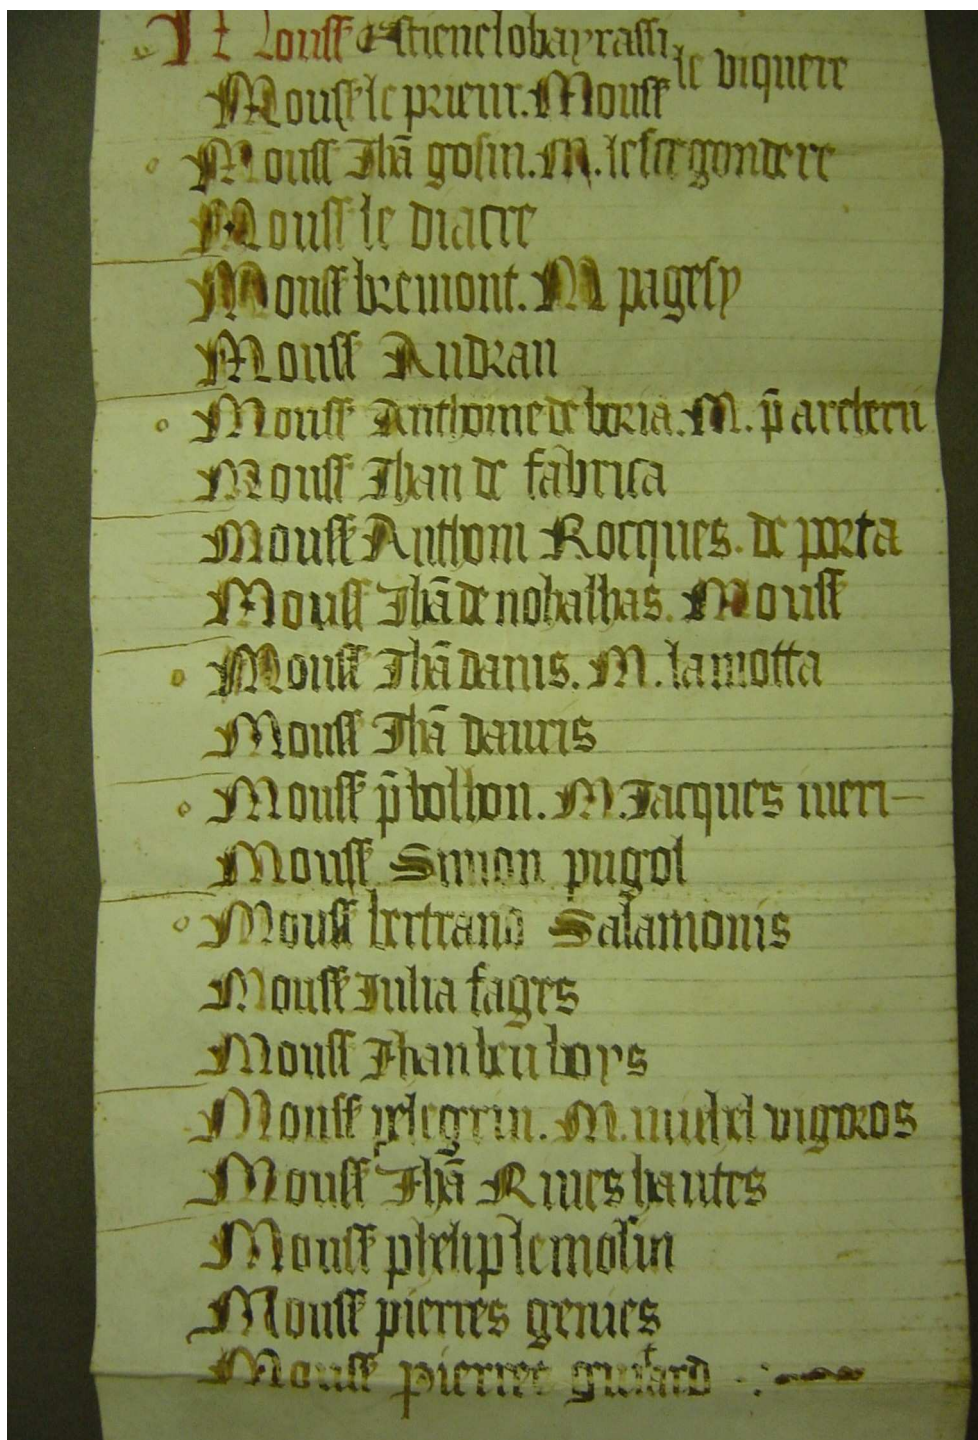 Mouss Estiene lobayrassi
Mouss le prieur. Mouss le viguere
Mouss Jhā gosin. M. le segondere
Mouss le diacre
Mouss bremont. M pagesy
Mouss Audran
Mouss Anthoine de boria. M. p̄
Mouss Jhan de fabrica
Mouss Anthoni Rocques. de porta
Mouss Jhā de nobalhas. Mouss
Mouss Jhā danis. M. lamotta
Mouss Jhā dauris
Mouss p̄ bolhon. M. Jacques
Mouss Simon pugol
Mouss bertrand Salamonis
Mouss Julia fages
Mouss Jhan
Mouss pelegrin. M. michel vigoros
Mouss Jhā Rives hautes
Mouss phelip lemosin
Mouss pierres genies
Mouss pierres